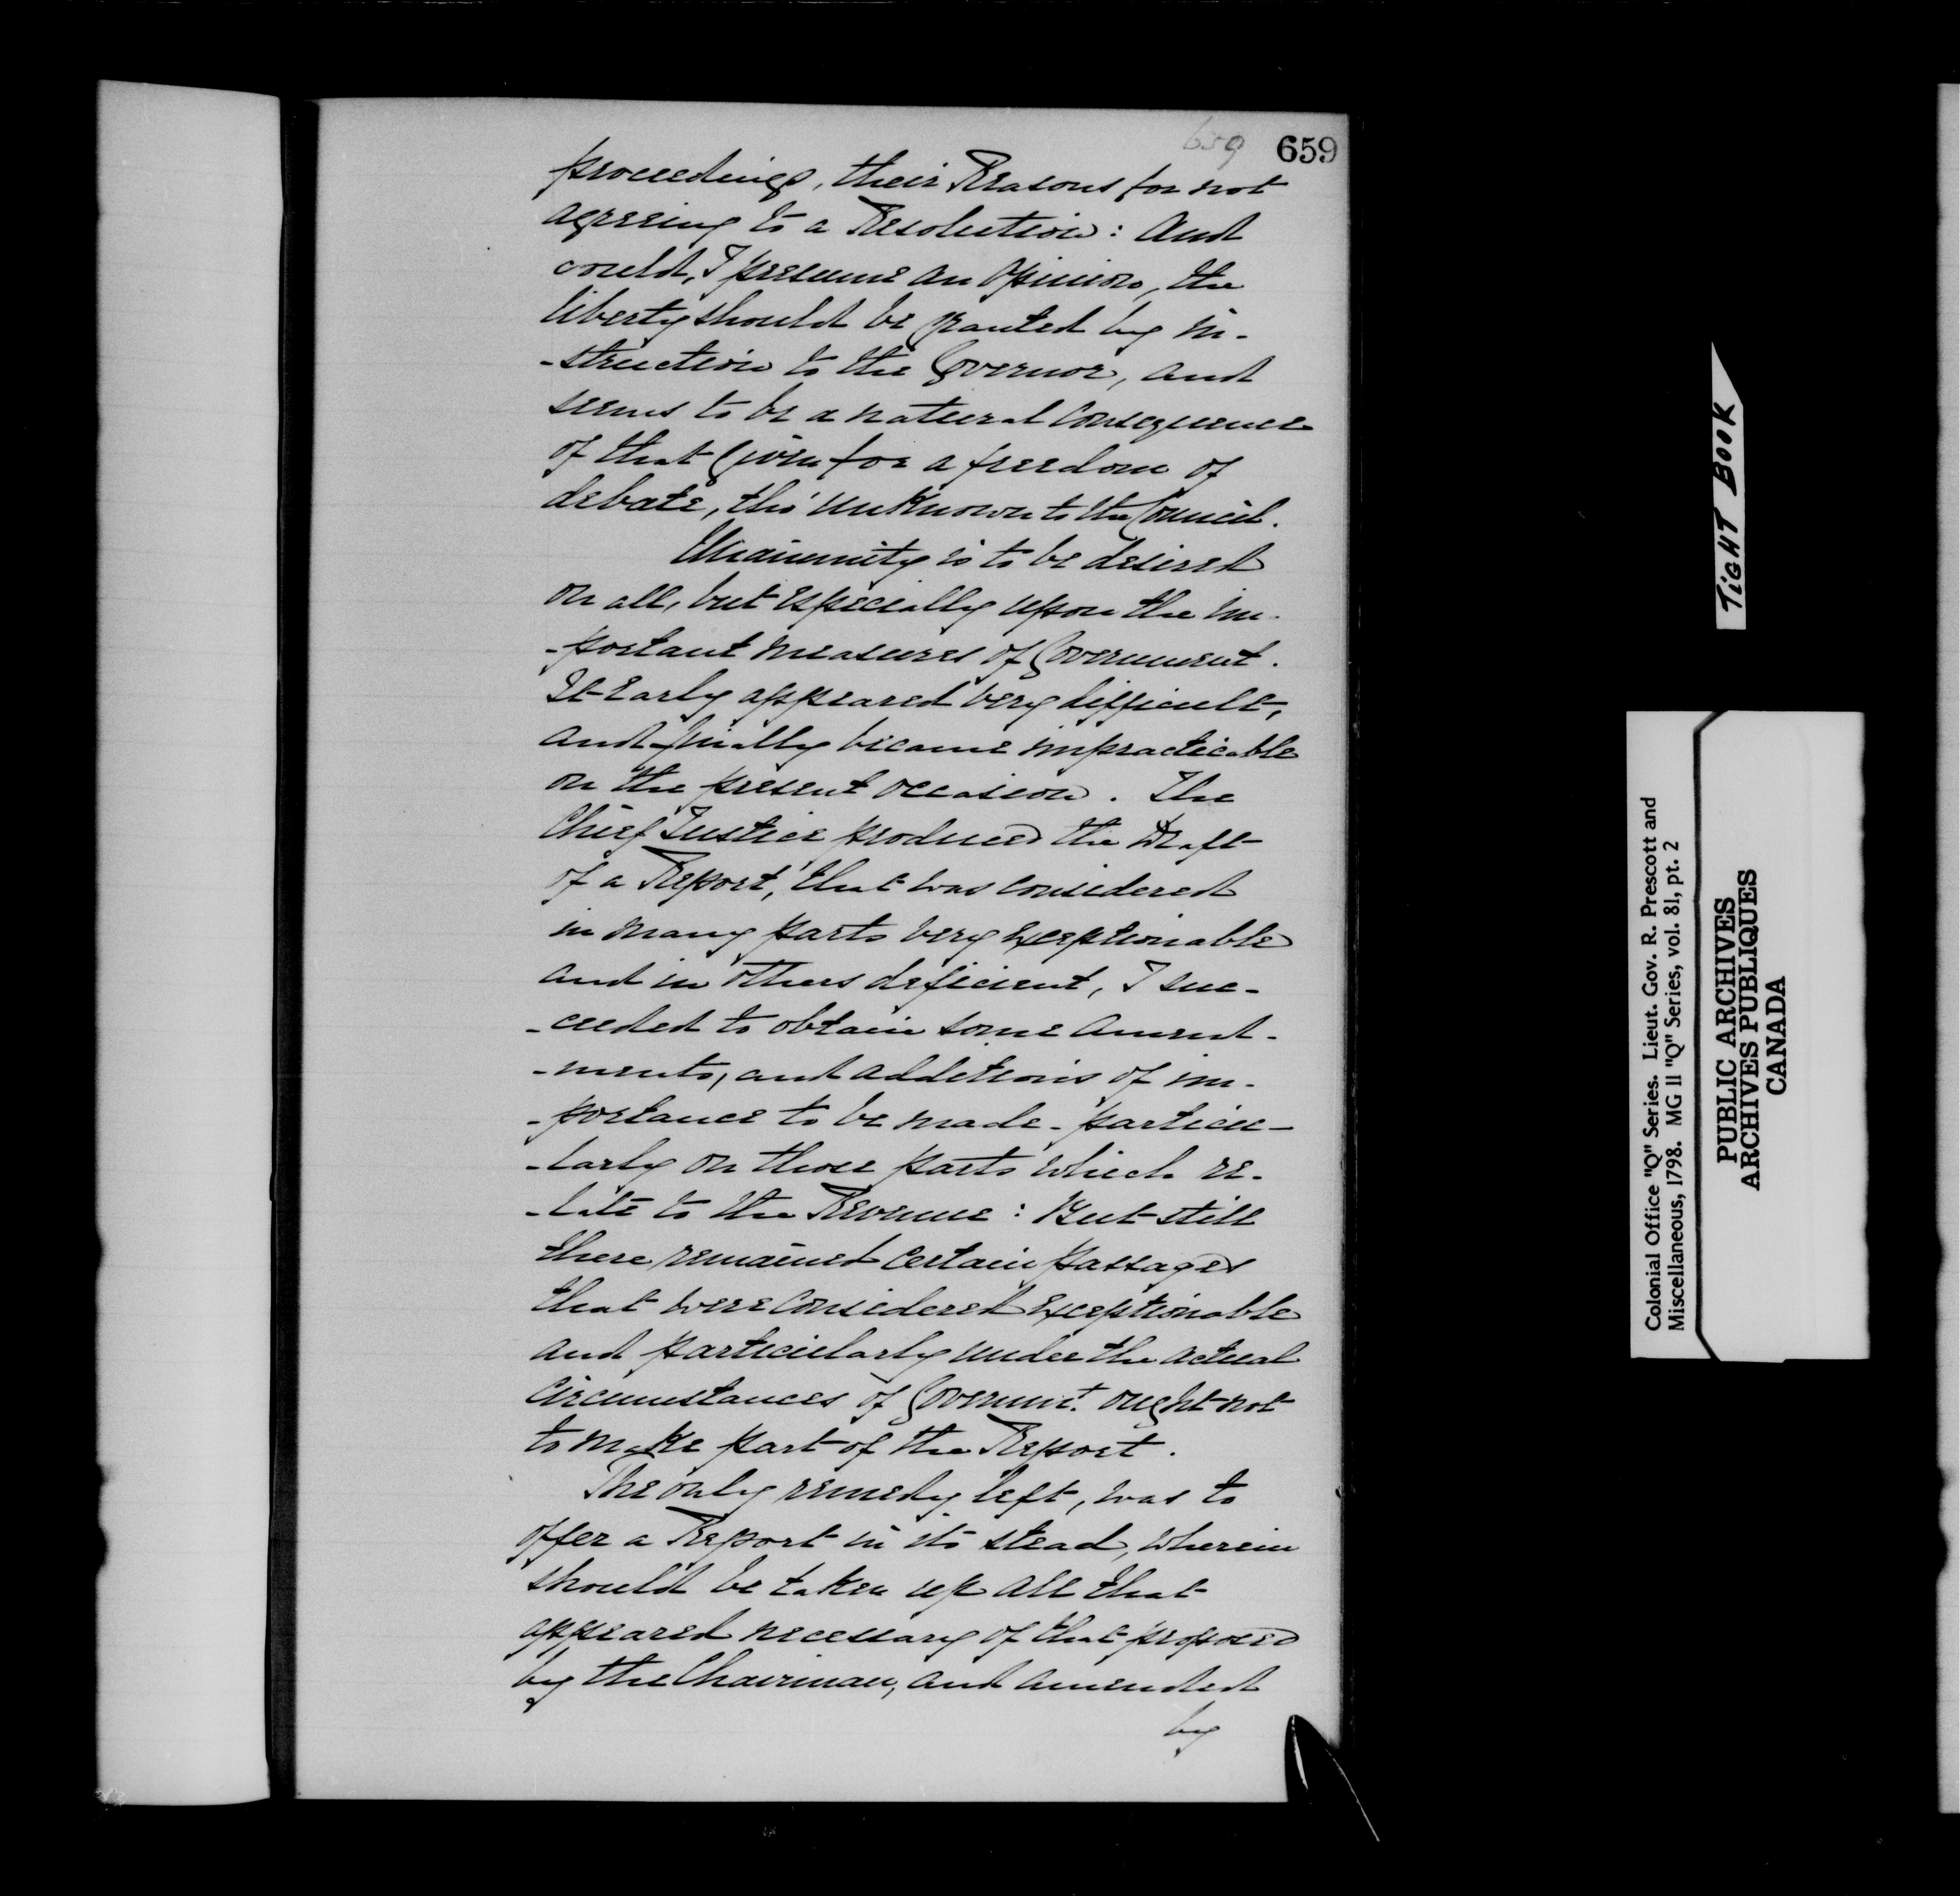 659 659
proceedings, their Reasons for not
agreeing to a Resolution: And
could, I presume an opinion, the
liberty should be granted by in-
-struction to the Governor, and
seems to be a natural consequence
of that given for a freedom of
debate, tho' unknown to the Council.
Unanimity is to be desired
on all, but especially upon the im-
-portant measures of Government.
It early appeared very difficult,
and finally became impracticable
on the present occasion. The
Chief Justice produced the Draft
of a Report, that was considered
in many parts very exceptionable
and in others deficient, I suc-
-ceeded to obtain some amend-
-ments, and additions of im-
-portance to be made - particu-
-larly on those parts which re-
-late to the Revenue: But still
there remained certain passages
that were considered exceptionable
and particularly under the actual
circumstances of Governmt. ought not
to make part of the Report.
The only remedy left, was to
offer a Report in its stead, wherein
should be taken up all that
appeared necessary of that proposed
by the Chairman, and amended
by
TIGHT BOOK
Colonial Office "Q" Series. Lieut. Gov. R. Prescott and
Miscellaneous, 1798. MG 11 "Q" Series, vol. 81, pt. 2
PUBLIC ARCHIVES
ARCHIVES PUBLIQUES
CANADA